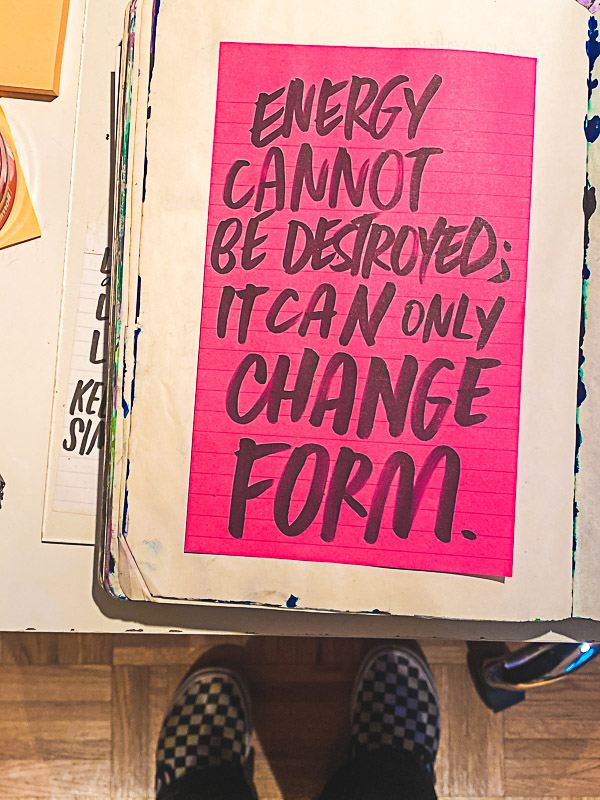 ENERGY
CANNOT
BE DESTROYED;
IT CAN ONLY
CHANGE
FORM.